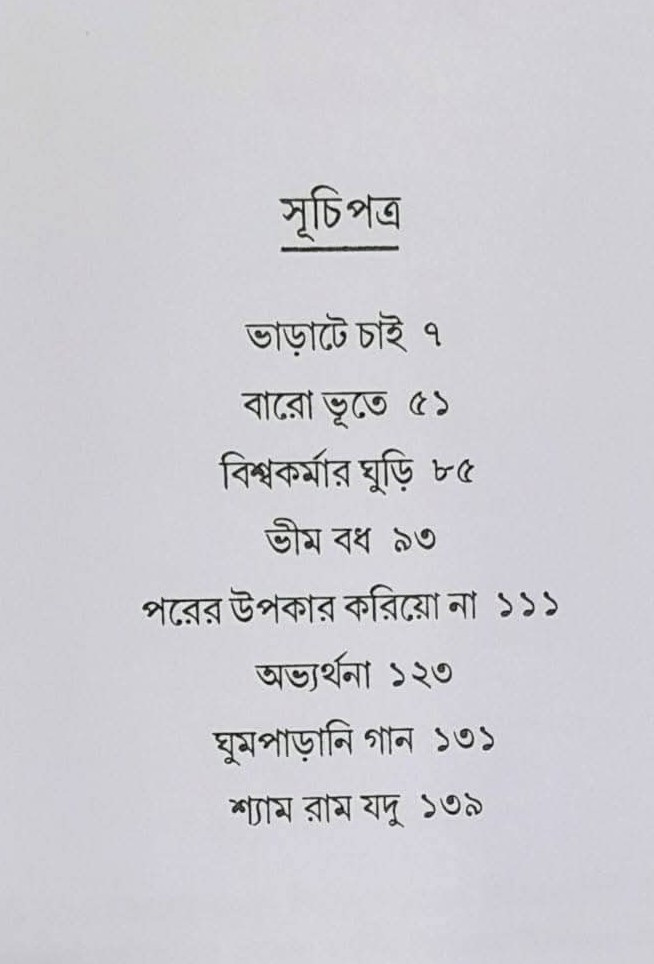 সূচিপত্র
ভাড়াটে চাই ৭
বারো ভূতে ৫১
বিশ্বকর্মার ঘুড়ি ৮৫
ভীম বধ ৯৩
পরের উপকার করিয়ো না ১১১
অভ্যর্থনা ১২৩
ঘুমপাড়ানি গান ১৩১
শ্যাম রাম যদু ১৩৯